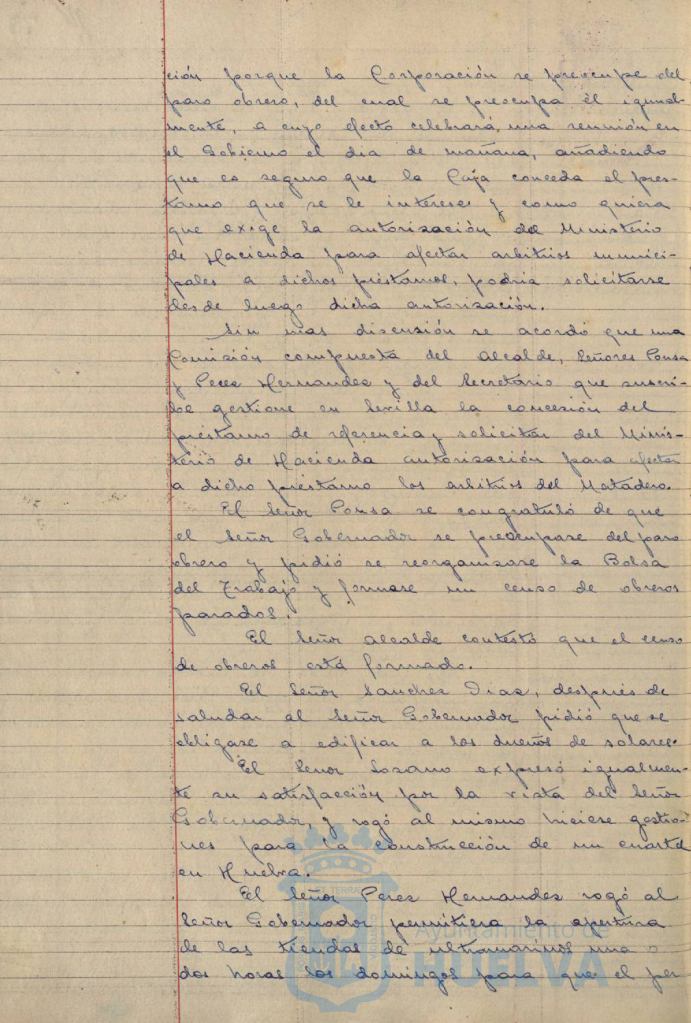 ción porque la Corporación se preocupe del
paro obrero, del cual se preocupa él igual-
mente, a cuyo efecto celebrará una reunión en
el Gobierno el dia de mañana, añadiendo
que es seguro que la Caja conceda el pres-
tamo que se le interese y como quiera
que exige la autorización del Ministerio
de Hacienda para afectar arbitrios munici-
pales a dichos préstamos, podria solicitarse
desde luego dicha autorización.
Sin mas discusión se acordó que una
Comisión compuesta del Alcalde, Señores Ponsa
y Perez Hernandez y del Secretario que suscri-
be gestione en Sevilla la concesión del
préstamo de referencia y solicitar del Minis-
terio de Hacienda autorización para afectar
a dicho préstamo los arbitrios del Matadero.
El Señor Ponsa se congratuló de que
el Señor Gobernador se preocupase del paro
obrero y pidió se reorganizase la Bolsa
del Trabajo y formase un censo de obreros
parados.
El Señor Alcalde contestó que el censo
de obreros está formado.
El Señor Sanchez Dias, después de
saludar al Señor Gobernador pidió que se
obligase a edificar a los dueños de solares.
El Señor Lozano expresó igualmen-
te su satisfacción por la vista del Señor
Gobernador, y rogó al mismo hiciese gestio-
nes para la construcción de un cuartel
en Huelva.
El Señor Perez Hernandez rogó al
Señor Gobernador permitiera la apertura
de las tiendas de ultramarinos una o
dos horas los domingos para que el per
Ayuntamiento de
HUELVA